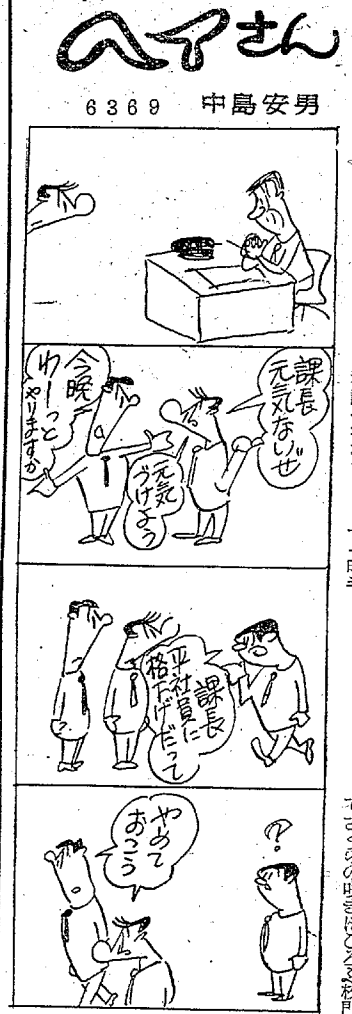 ヘイさん
6369 中島安男
課長
元気ないぜ
元気
づけよう
今晩
わーっと
やりますか
課長
平社員に
格下げだって
?
やめて
おこう